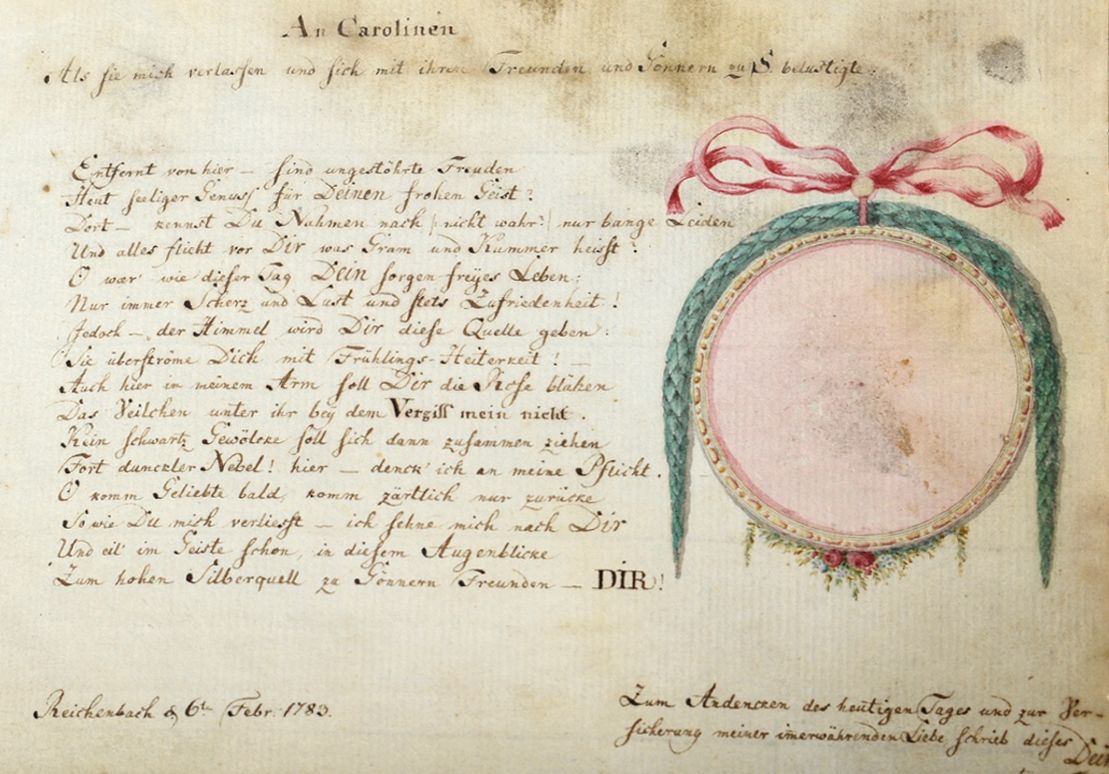 An Carolinen
Als sie mich verlassen und sich mit ihren Freunden und Gönnern zu S. belustigte.
Entfernt von hier – sind ungestöhrte Freuden
Heut seeliger Genuss für Deinen frohen Geist?
Dort – kennst Du Nahmen nach /: nicht wahr :/ nur bange Leiden
Und alles flieht vor Dir was Gram und Kummer heisst?
O wär' wie dieser Tag Dein sorgen freyes Leben;
Nur immer Scherz und Lust und stets Zufriedenheit!
Jedoch – der Himmel wird Dir diese Quelle geben:
Sie überströme Dich mit Frühlings-Heiterkeit! –
Auch hier in meinem Arm soll Dir die Rose blühen
Das Veilchen unter ihr bey dem Vergiss mein nicht.
Kein schwartz Gewölcke soll sich dann zusammen ziehen
Fort dunckler Nebel! hier – denck' ich an meine Pflicht.
O komm Geliebte bald, komm zärtlich nur zurücke
So wie Du mich verliesst – ich sehne mich nach Dir
Und eil' im Geiste schon, in diesem Augenblicke
Zum hohen Silberquell zu Gönnern Freunden – DIR!
Reichenbach d. 6t. Febr. 1783.
Zum Andencken des heutigen Tages und zur Ver-
sicherung meiner im̄erwährenden Liebe schrieb dieses
Dein